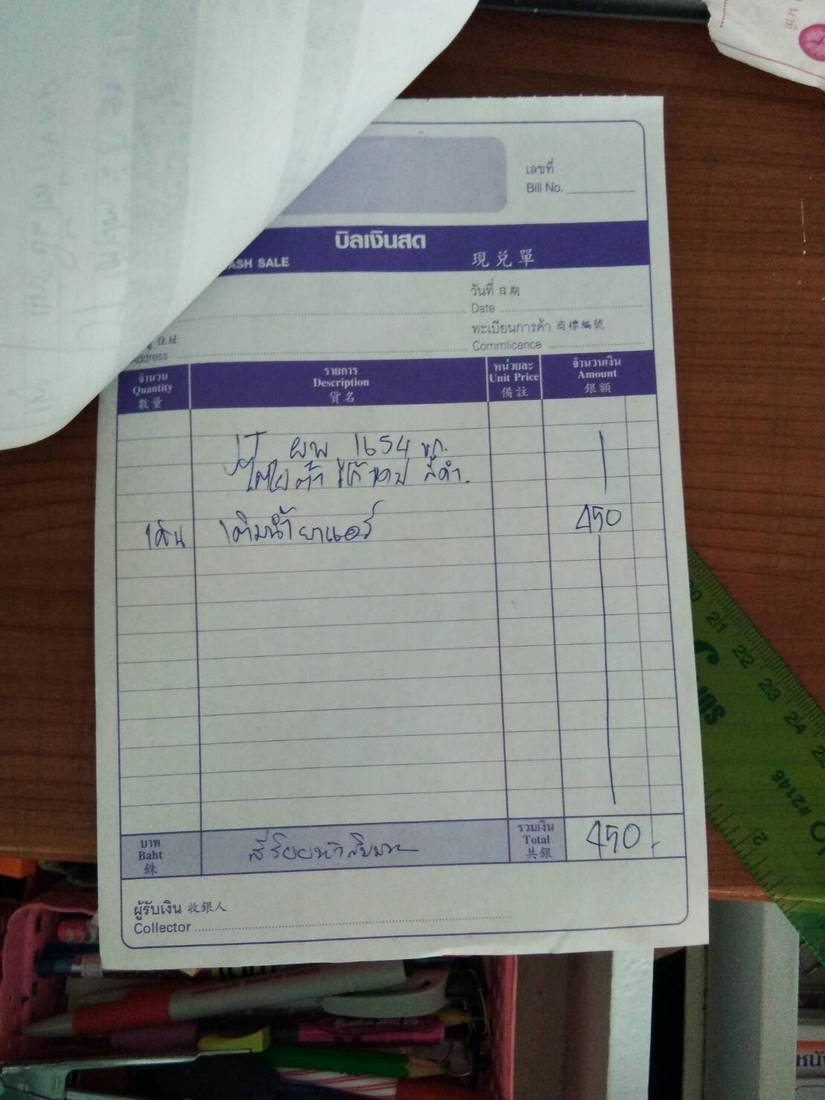 เลขที่
Bill No.
บิลเงินสด
ASH SALE 現兑單
วันที่ 日期
Date
ทะเบียนการค้า 商標編號
Commlicence
住址
Address
จำนวน รายการ หน่วยละ จำนวนเงิน
Quantity Description Unit Price Amount
數量 貨名 備註 銀額
1654
โตโยต้า สีดำ.
1คัน เติมน้ำยาแอร์ 450
บาท สี่ร้อยห้าสิบบาท รวมเงิน 450.
Baht Total
銖 共銀
ผู้รับเงิน 收銀人
Collector
20 21 22 23 24
#2146
2